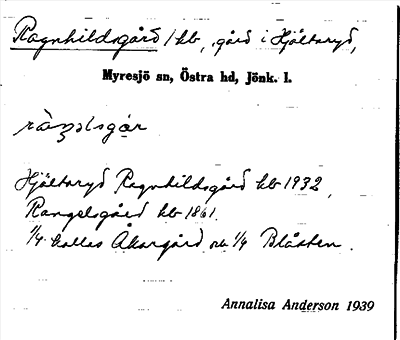 Ragnhildsgård kb, gård i Hjältaryd,
Myresjö sn, Östra hd, Jönk. l.
Hjältaryd Ragnhildsgård kb 1932
Rangelsgård kb 1861.
1/4 kallas Åkargård och 1/4 Blåsten.
Annalisa Anderson 1939